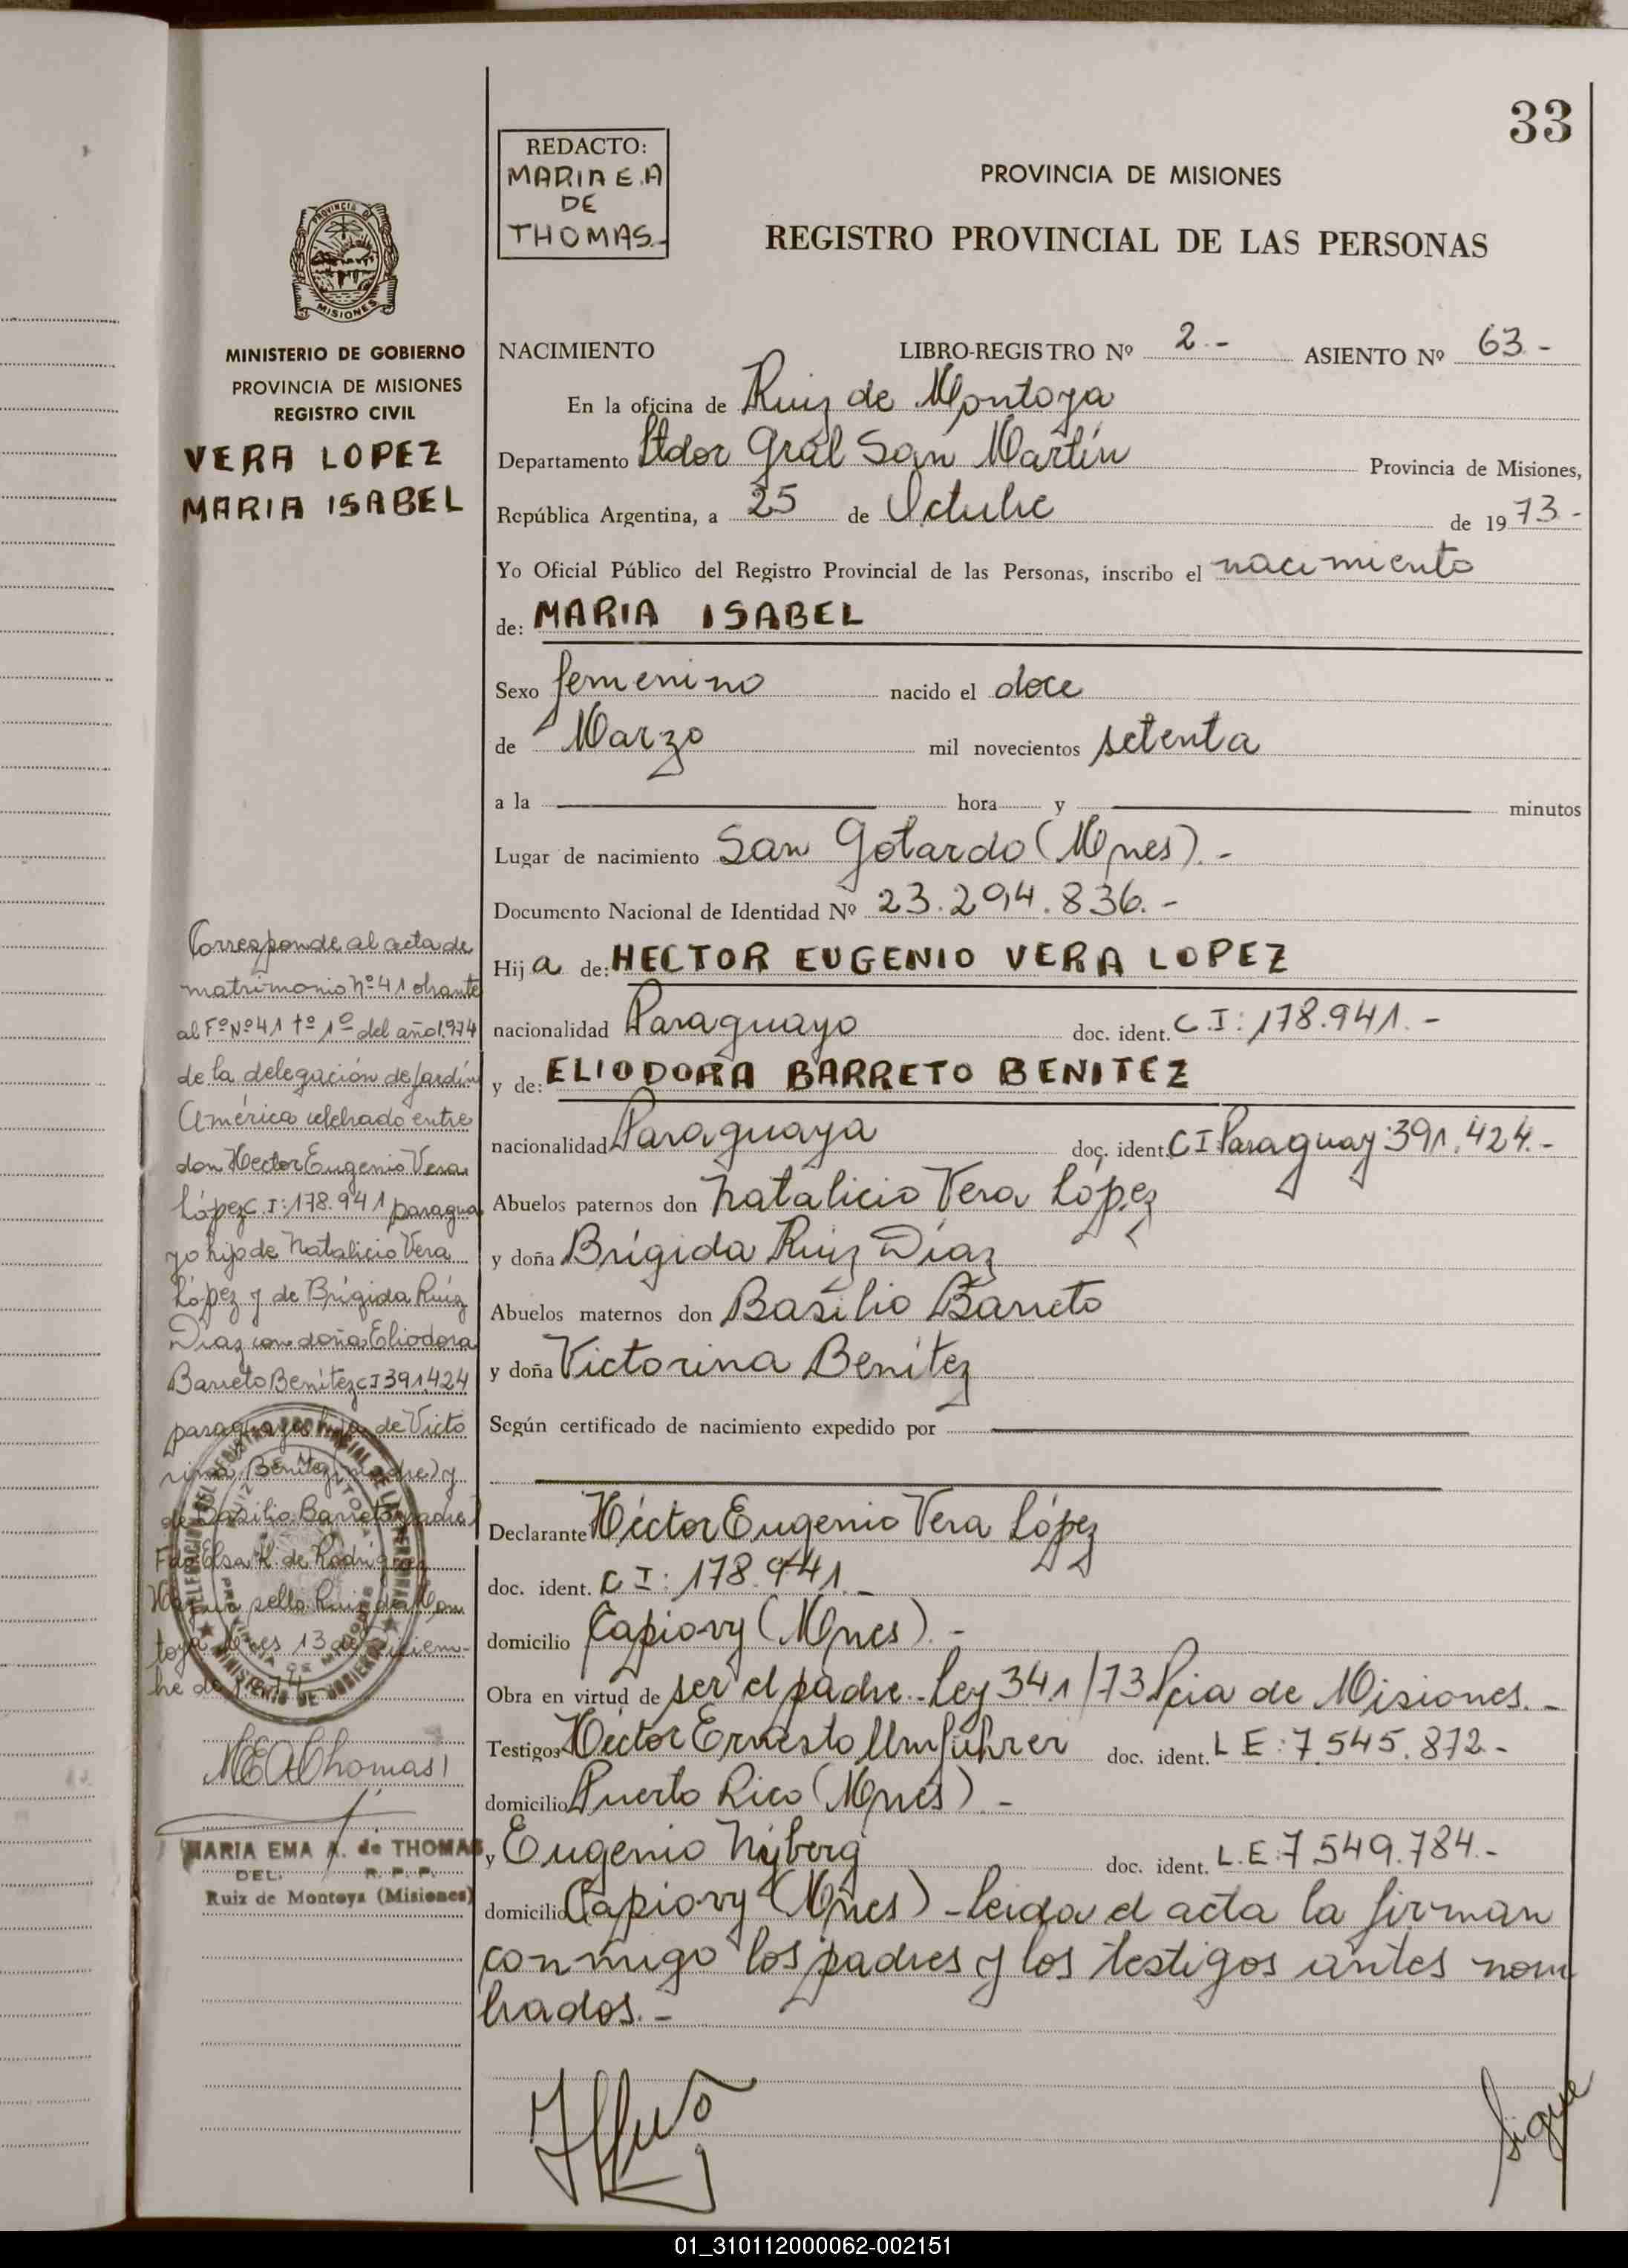 33
REDACTO:
MARIA E. A
DE
THOMAS.-
PROVINCIA DE MISIONES
REGISTRO PROVINCIAL DE LAS PERSONAS
PROVINCIA DE
MISIONES
MINISTERIO DE GOBIERNO
PROVINCIA DE MISIONES
REGISTRO CIVIL
VERA LOPEZ
MARIA ISABEL
NACIMIENTO LIBRO-REGISTRO Nº 2.- ASIENTO Nº 63.-
En la oficina de Ruiz de Montoya
Departamento Ltdor Gral San Martín Provincia de Misiones,
República Argentina, a 25 de Octubre de 1973.-
Yo Oficial Público del Registro Provincial de las Personas, inscribo el nacimiento
de: MARIA ISABEL
Sexo femenino nacido el doce
de Marzo mil novecientos setenta
a la hora y minutos
Lugar de nacimiento San Gotardo (Mnes).-
Documento Nacional de Identidad Nº 23.294.836.-
Hija de: HECTOR EUGENIO VERA LOPEZ
nacionalidad Paraguayo doc. ident. C.I: 178.941.-
y de: ELIODORA BARRETO BENITEZ
nacionalidad Paraguaya doc. ident. C I Paraguay 391.424.-
Abuelos paternos don Natalicio Vera López
y doña Brígida Ruiz Díaz
Abuelos maternos don Basilio Barreto
y doña Victorina Benítez
Según certificado de nacimiento expedido por
Declarante Héctor Eugenio Vera López
doc. ident. C I: 178.941.-
domicilio Capiovy (Mnes).-
Obra en virtud de ser el padre.-Ley 341/73 Pcia de Misiones.-
Testigos Héctor Ernesto Umfuhrer doc. ident. L E: 7.545.872.-
domicilio Puerto Rico (Mnes).-
y Eugenio Nyberg doc. ident. L.E: 7 549.784.-
domicilio Capiovy (Mnes)-Leida el acta la firman
conmigo los padres y los testigos antes nom
brados.-
Sigue
Corresponde al acta de
matrimonio nº 41 obrante
al Fº Nº 41 tº 1º del año 1.974
de la delegación de Jardín
América celebrado entre
don Hector Eugenio Vera
López C.I: 178.941 paragua
yo hijo de Natalicio Vera
López y de Brígida Ruiz
Diaz con doña Eliodora
Barreto Benítez CI 391.424
paraguaya hija de Victo
rina Benitez (madre) y
de Basilio Barreto (padre)
Fdo Elsa K. de Rodríguez
sello Ruiz de Mon
toya Mnes 13 de Diciem-
bre de 1974
MEAThomas
MARIA EMA A. de THOMAS
DEL. R. P. P.
Ruiz de Montoya (Misiones)
01_310112000062-002151